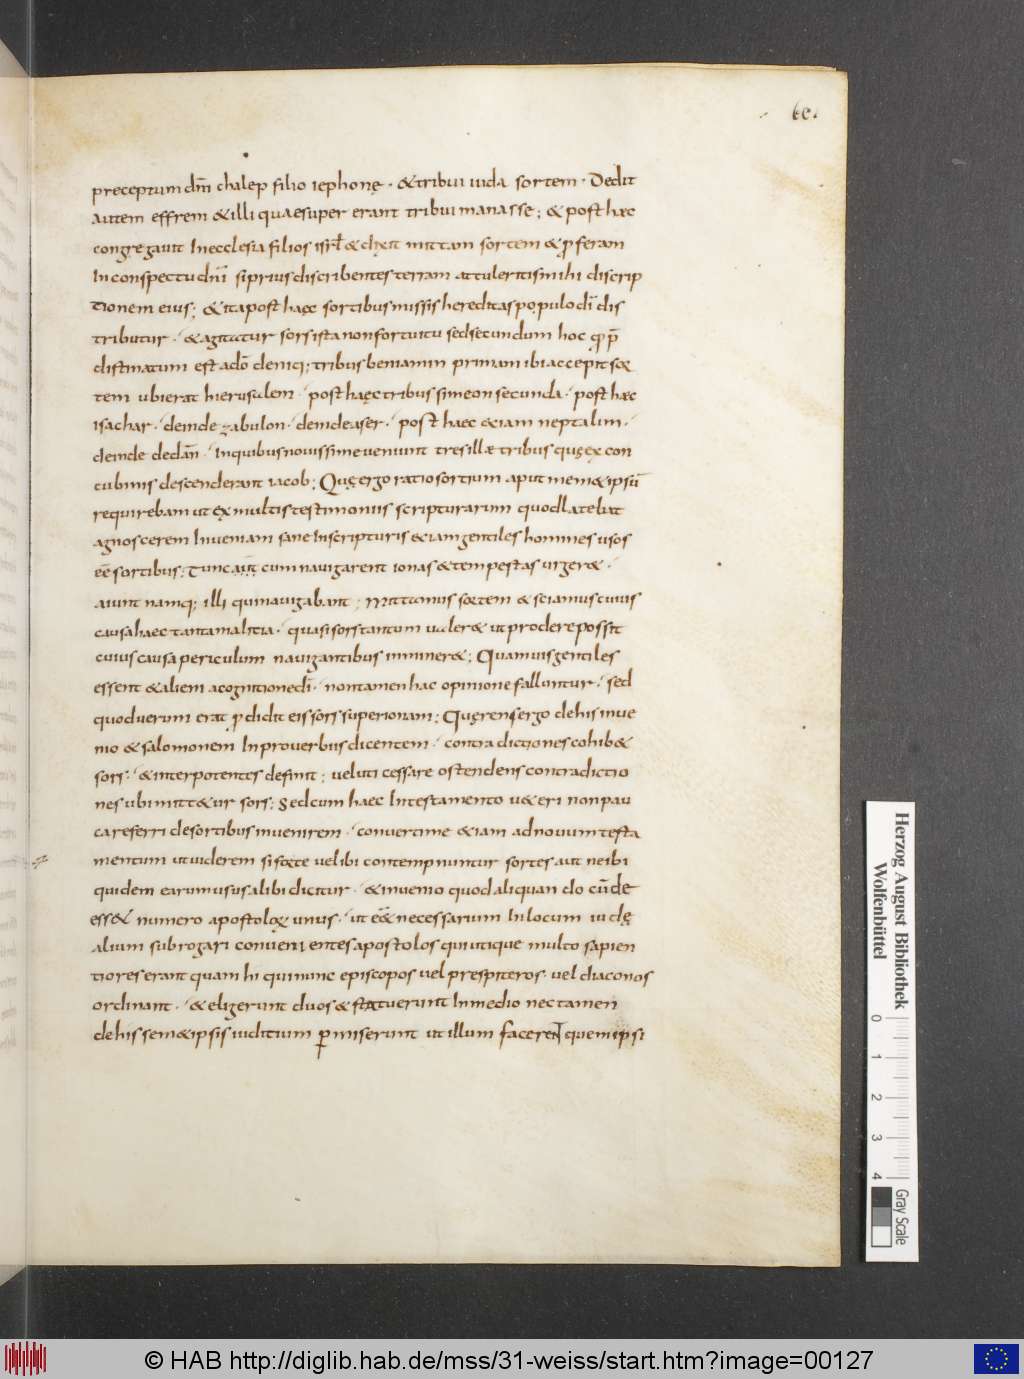 60.
preceptum dm̄ chalep filio iephonę · & tribui iuda sortem · Dedit
autem effrem & illi quae super erant tribui manasse ; & post haec
congregauit In ecclesia filios isrl̄ & dixit mittam sortem & ꝓferam
In conspectu dn̄i si prius discribentes terram attuleritis mihi discrip
tionem eius ; & ita post haęc sortibus missis hereditas populo dī dis
tribuitur · & agitatur sors ista non fortuitu sed secundum hoc qđ p̄
distinatum est a dō deniq; tribus beniamin primam ibi accepit sor
tem ubi erat hierusalem · post haęc tribus simeon secunda · post haec
isachar · deinde zabulon · deinde aser · post haec &iam neptalim ·
deinde dedan̄ · In quibus nouissime ueniunt tres illæ tribus quę ex con
cubinis descenderant iacob ; Quę ergo ratio sortium aput mem&ipsū
requirebam ut ex multis testimoniis scripturarum quod latebat
agnoscerem Inueniam sane In scripturis &iam gentiles homines usos
eē sortibus ; Tunc aūt cum nauigarent ionas & tempestas urger& ·
aiunt namq; illi qui nauigabant ; Mittamus sortem & sciamus cuius
causa haec tanta malitia · quasi sors tantum ualer& ut prodere possit
cuius causa periculum nauigantibus inminer& ; Quamuis gentiles
essent & alieni a cognitione dī · non tamen hac opinione falluntur · sed
quod uerum erat ꝓdidit eis sors super ionam ; Quęrens ergo de his inue
nio & salomonem In prouerbiis dicentem · contradictiones cohib&
sors · & inter potentes definit ; ueluti cessare ostendens contradictio
nes ubi mitt&ur sors ; Sed cum haec In testamento u&eri non pau
ca referri de sortibus inuenirem · conuerti me &iam ad nouum testa
mentum ut uiderem si forte uel ibi contempnuntur sortes aut ne ibi
quidem earum usus alibi dicitur · & inuenio quod aliquando cū de
ess& numero apostolorum unus · ut eēt necessarium In locum iudę
alium subrogari conueni entes apostolos qui utique multo sapien
tiores erant quam hi qui nunc episcopos uel prespiteros uel diaconos
ordinant · & eligerunt duos & statuerunt In medio nec tamen
de his sem&ipsis iuditium ꝑmiserunt ut illum facerent quem ipsi
Herzog August Bibliothek
Wolfenbüttel
0 1 2 3 4
Gray Scale
© HAB http://diglib.hab.de/mss/31-weiss/start.htm?image=00127